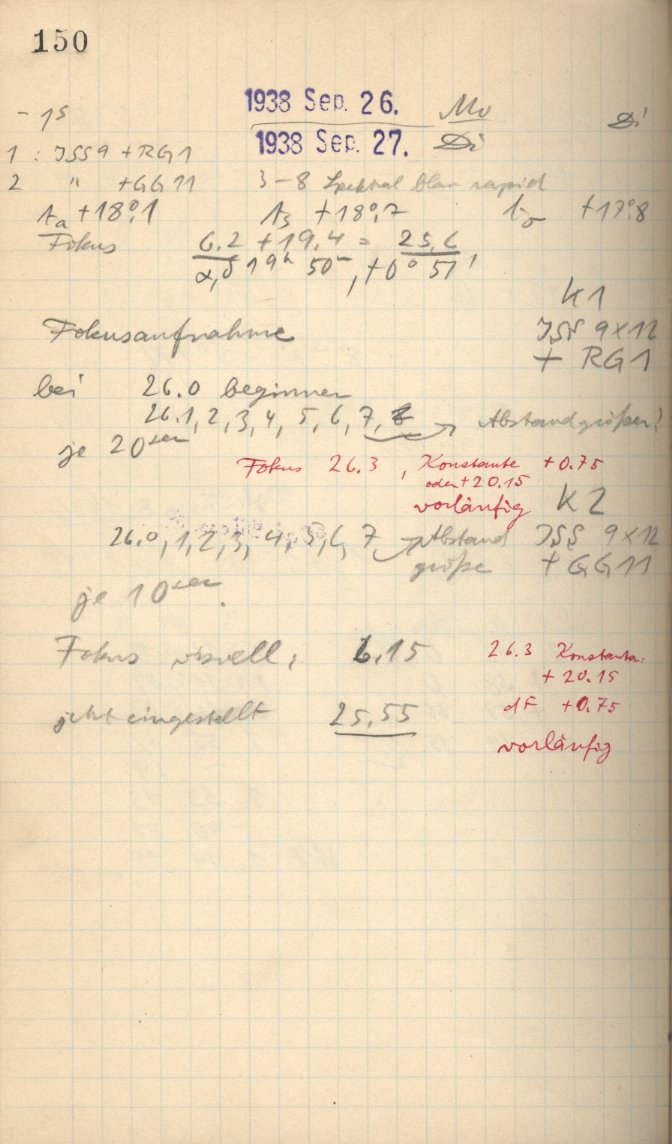 150
1938 Sep. 26. Mo
- 1s Di
1938 Sep. 27. Di
1 : ISS 9 + RG1
2 " + GG11 3-8 Spektral blau rapid
ta +18°,1 ts +18°,7 +17°,8
Fokus 6.2 + 19.4 = 25,6
α, δ 19h 50m, +6° 51'
K1
Fokusaufnahme ISS 9x12
+ RG1
bei 26.0 beginnen
26.1, 2, 3, 4, 5, 6, 7, 8 Abstand größer?
je 20sec
Fokus 26.3, Konstante +0.75
oder +20.15
vorläufig K2
26.0, 1, 2, 3, 4, 5, 6, 7 Abstand ISS 9x12
größe + GG11
je 10sec
Fokus visuell: 6.15 26.3 Konstante:
+ 20.15
jetzt eingestellt 25,55 dF +0.75
vorläufig